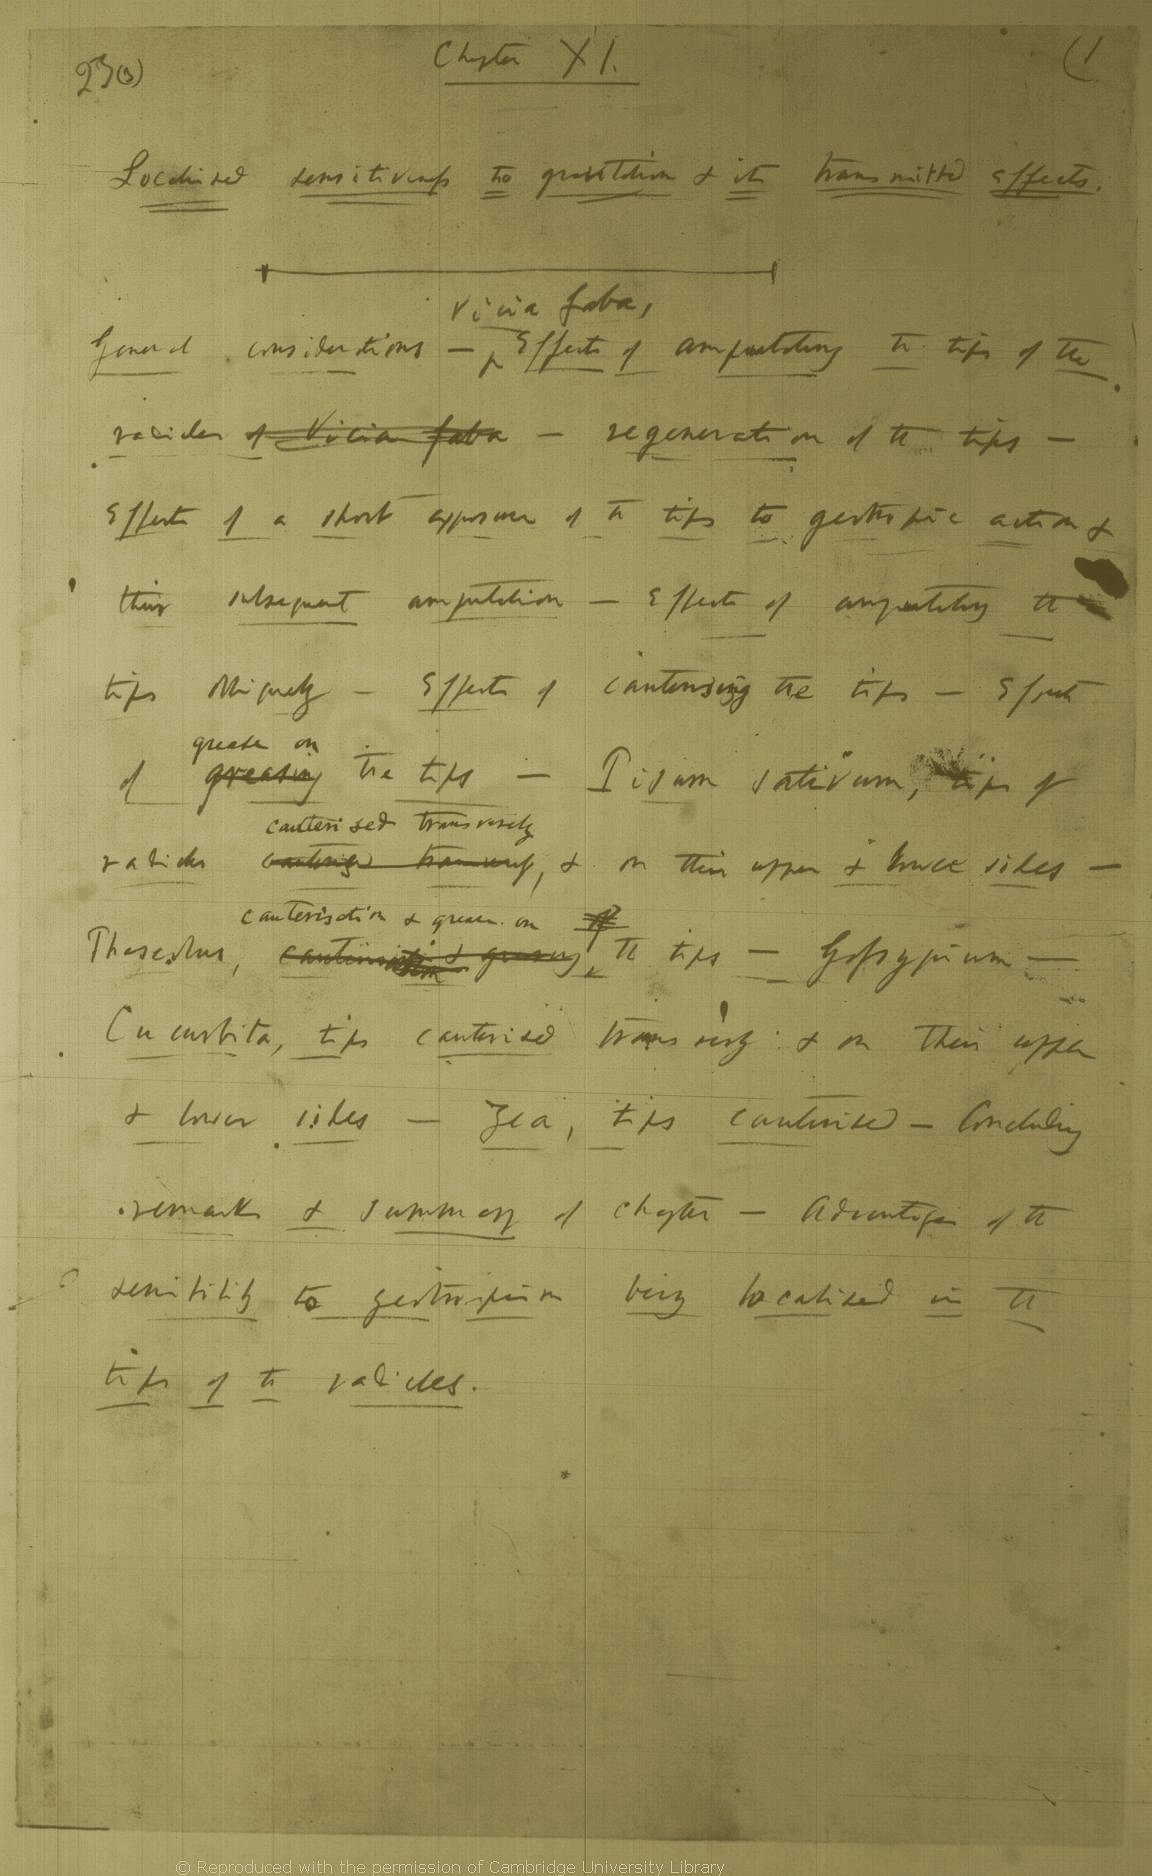 23(a)
Chapter XI.
(1
Localised sensitiveness to gravitation & its transmitted effects.
Vicia faba,
General considerations — Effects of amputating the tips of the
radicles of Vicia faba — regeneration of the tips —
Effects of a short exposure of the tips to geotropic action &
their subsequent amputation — Effects of amputating the
tips obliquely — Effects of cauterising the tips — Effects
grease on
of greasing the tips — Pisum sativum, tips of
cauterised transversely
radicles cauterised transversely, & on their upper & lower sides —
cauterisation & grease on
Phaseolus, cauterisation & greasing the tips — Gossypium —
Cucurbita, tips cauterised transversely & on their upper
& lower sides — Zea, tips cauterised — Concluding
remarks & summary of chapter — Advantages of the
sensibility to geotropism being localised in the
tips of the radicles.
© Reproduced with the permission of Cambridge University Library